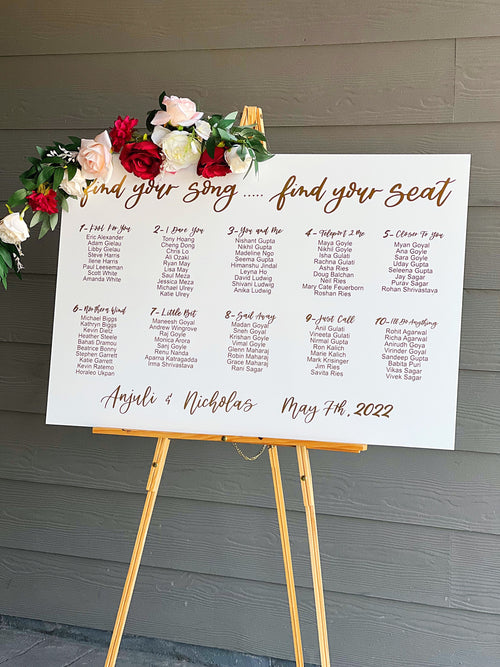 find your song ..... find your seat
1- Fool For You
Eric Alexander
Adam Gielau
Libby Gielau
Steve Harris
Ilene Harris
Paul Leeseman
Scott White
Amanda White
2- I Dare You
Tony Hoang
Cheng Dong
Chris Lo
Ali Ozaki
Ryan May
Lisa May
Saul Meza
Jessica Meza
Michael Ulrey
Katie Ulrey
3- You and Me
Nishant Gupta
Nikhil Gupta
Madeline Ngo
Seema Gupta
Himanshu Jindal
Leyna Ho
David Ludwig
Shivani Ludwig
Anika Ludwig
4- Teleport 2 Me
Maya Goyle
Nikhil Goyle
Isha Gulati
Rachna Gulati
Asha Ries
Doug Balchan
Neil Ries
Mary Cate Feuerborn
Roshan Ries
5- Closer To You
Myan Goyal
Ana Goyle
Sara Goyle
Uday Gupta
Seleena Gupta
Jay Sagar
Purav Sagar
Rohan Shrivastava
6- Northern Wind
Michael Biggs
Kathryn Biggs
Kevin Dietz
Heather Steele
Bahati Dramou
Beatrice Bonny
Stephen Garrett
Katie Garrett
Kevin Ratemo
Horaleo Ukpan
7- Little Bit
Maneesh Goyal
Andrew Wingrove
Raj Goyle
Monica Arora
Sanj Goyle
Renu Nanda
Aparna Katragadda
Irma Shrivastava
8- Sail Away
Madan Goyal
Sneh Goyal
Krishan Goyle
Vimal Goyle
Glenn Maharaj
Robin Maharaj
Grace Maharaj
Rani Sagar
9- Just Call
Anil Gulati
Vineeta Gulati
Nirmal Gupta
Ron Kalich
Marie Kalich
Mark Krisinger
Jim Ries
Savita Ries
10- I'll Do Anything
Rohit Agarwal
Richa Agarwal
Anirudh Goya
Virinder Goyal
Sandeep Gupta
Babita Puri
Vikas Sagar
Vivek Sagar
Anjuli & Nicholas May 7th, 2022